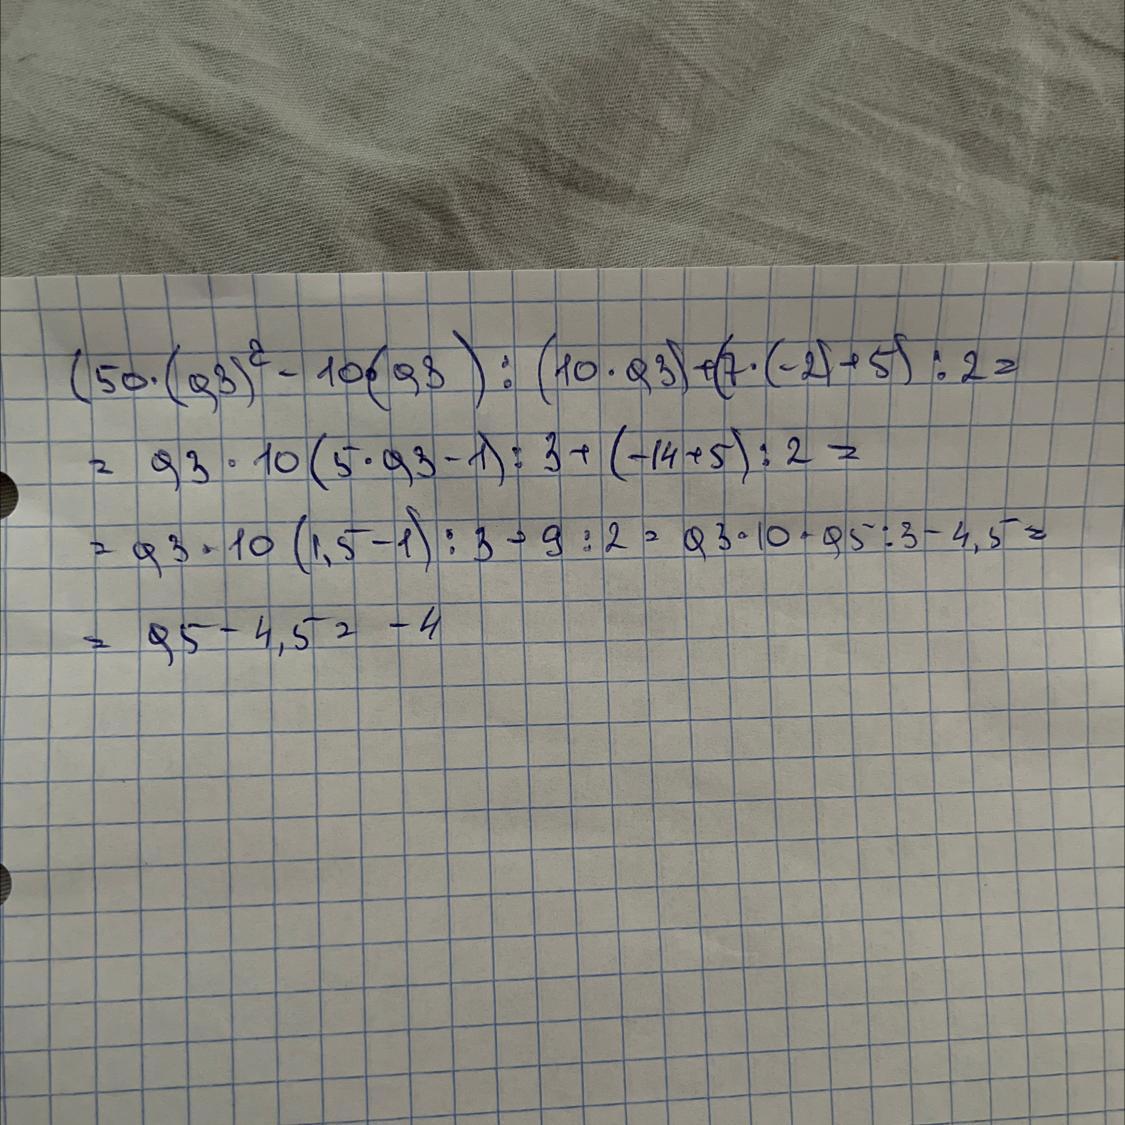 (50·(0,3)² - 10·(0,3)) : (10·0,3)+(7·(-2)+5) : 2 =
= 0,3 · 10(5·0,3-1) : 3 + (-14+5) : 2 =
= 0,3 · 10 (1,5-1) : 3 - 9 : 2 = 0,3·10·0,5:3-4,5 =
= 0,5 - 4,5 = -4